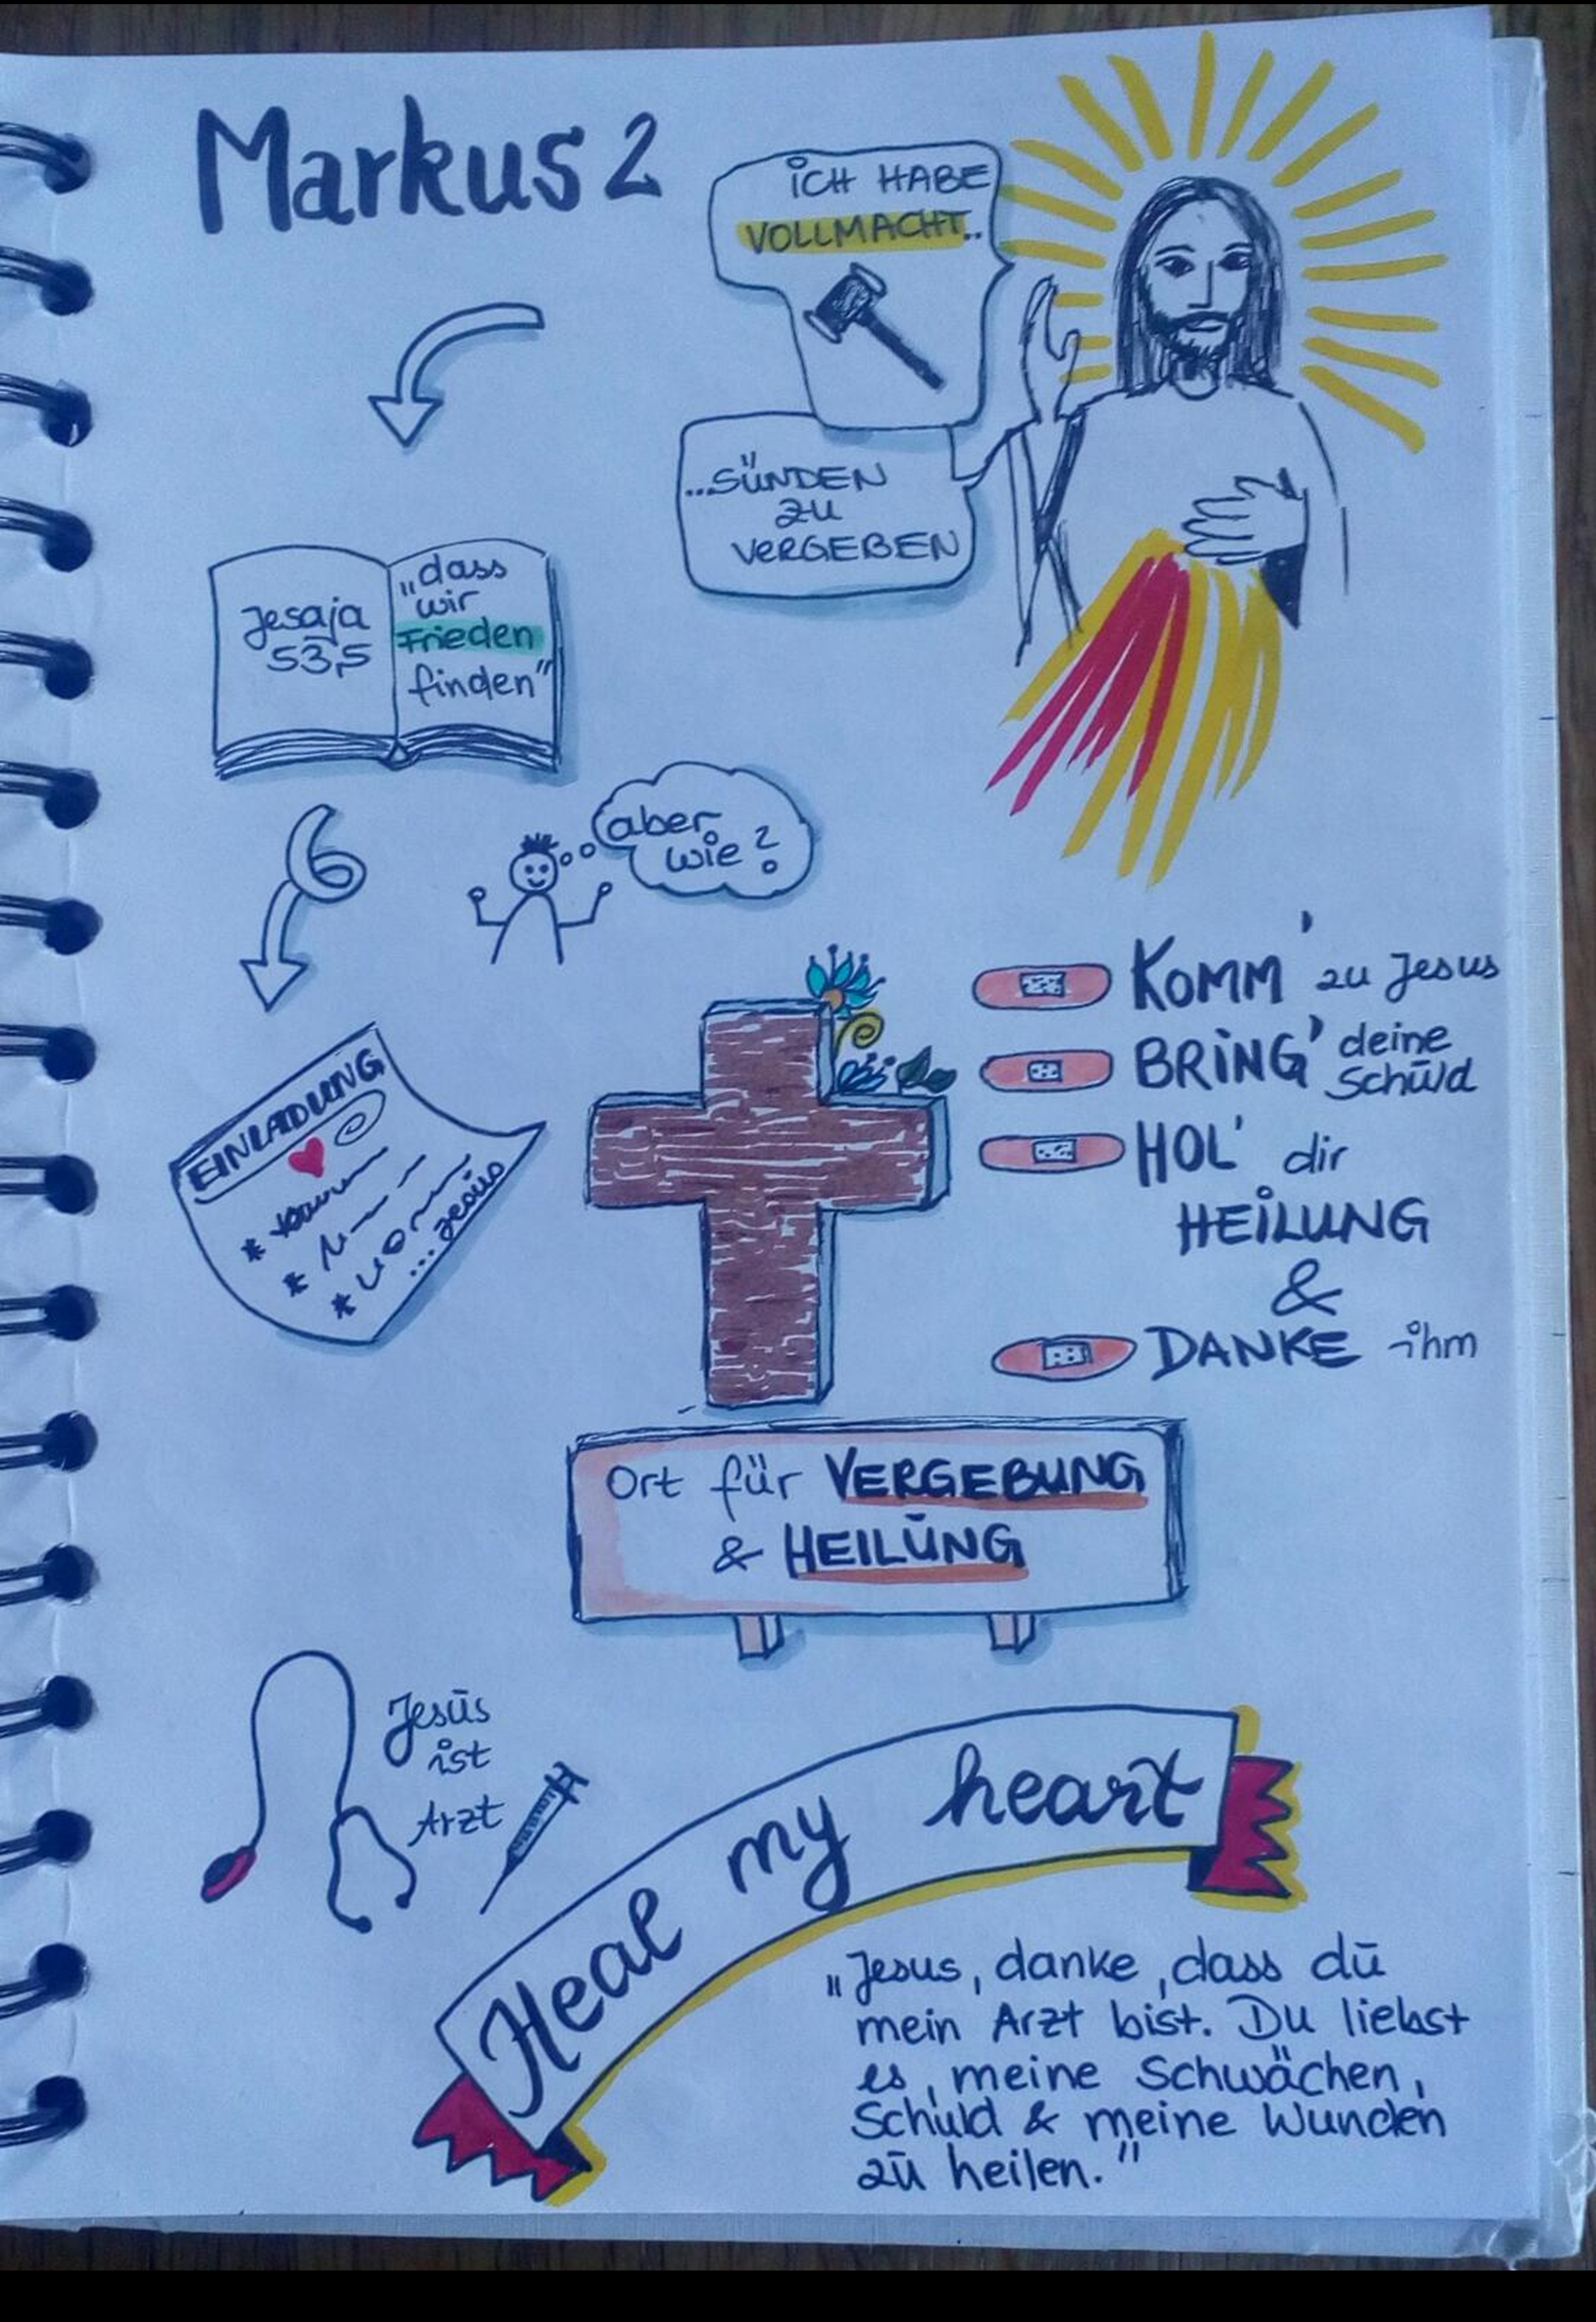 Markus 2
iCH HABE
VOLLMACHT..
...SÜNDEN
zu
VERGEBEN
Jesaja
53,5
„dass
wir
Frieden
finden"
aber
wie?
EINLADUNG
... Jesus
KOMM' zu Jesus
BRiNG' deine
Schuld
HOL' dir
HEiLUNG
&
DANKE ihm
Ort für VERGEBUNG
& HEILUNG
Jesus
ist
Arzt
Heal my heart
„Jesus, danke, dass du
mein Arzt bist. Du liebst
es, meine Schwächen,
Schuld & meine Wunden
zu heilen."